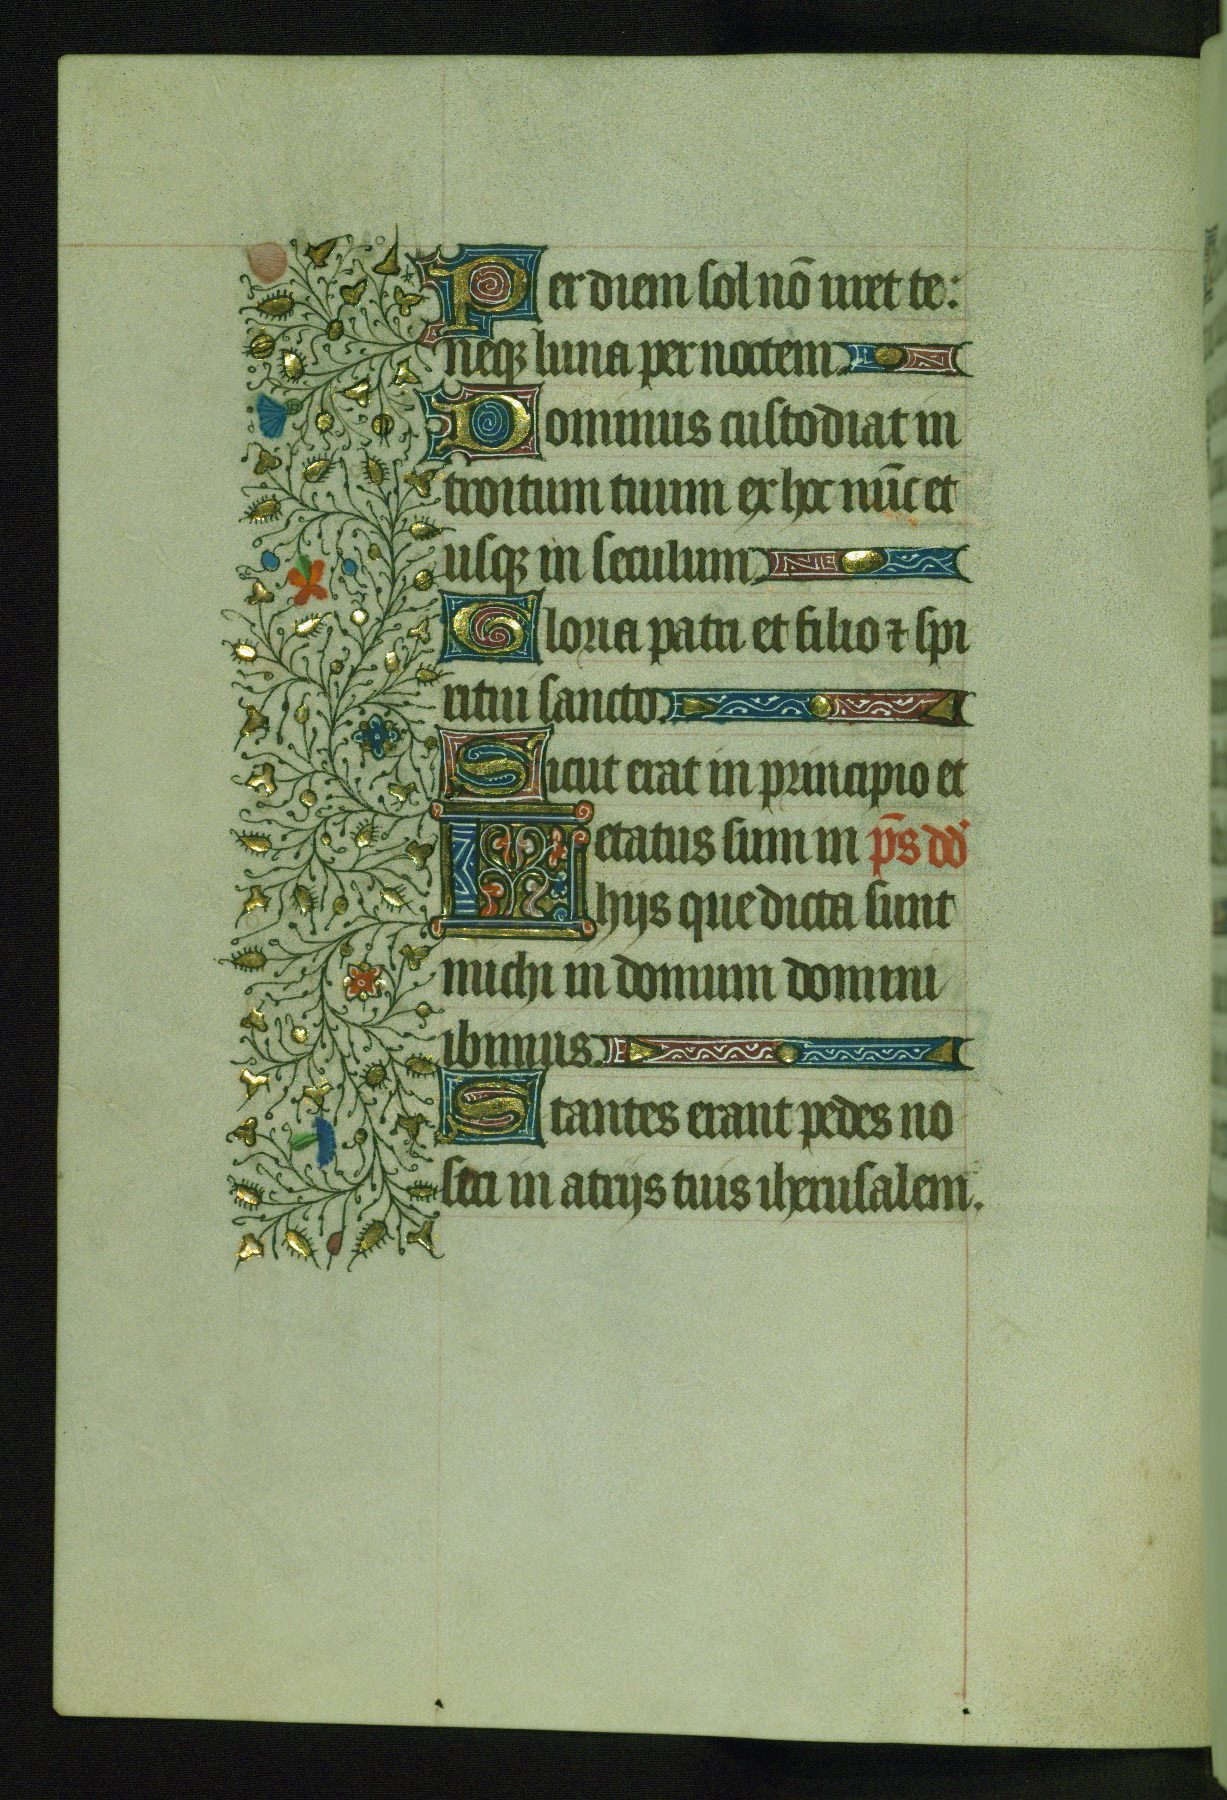 Per diem sol nō uret te:
neqꝫ luna per noctem.
Dominus custodiat in
troitum tuum ex hoc nūc et
usqꝫ in seculum.
Gloria patri et filio ⁊ spi
ritui sancto.
Sicut erat in principio et
Letatus sum in p̄s dd̓
hijs que dicta sunt
michi in domum domini
ibimus.
Stantes erant pedes no
stri in atrijs tuis iherusalem.